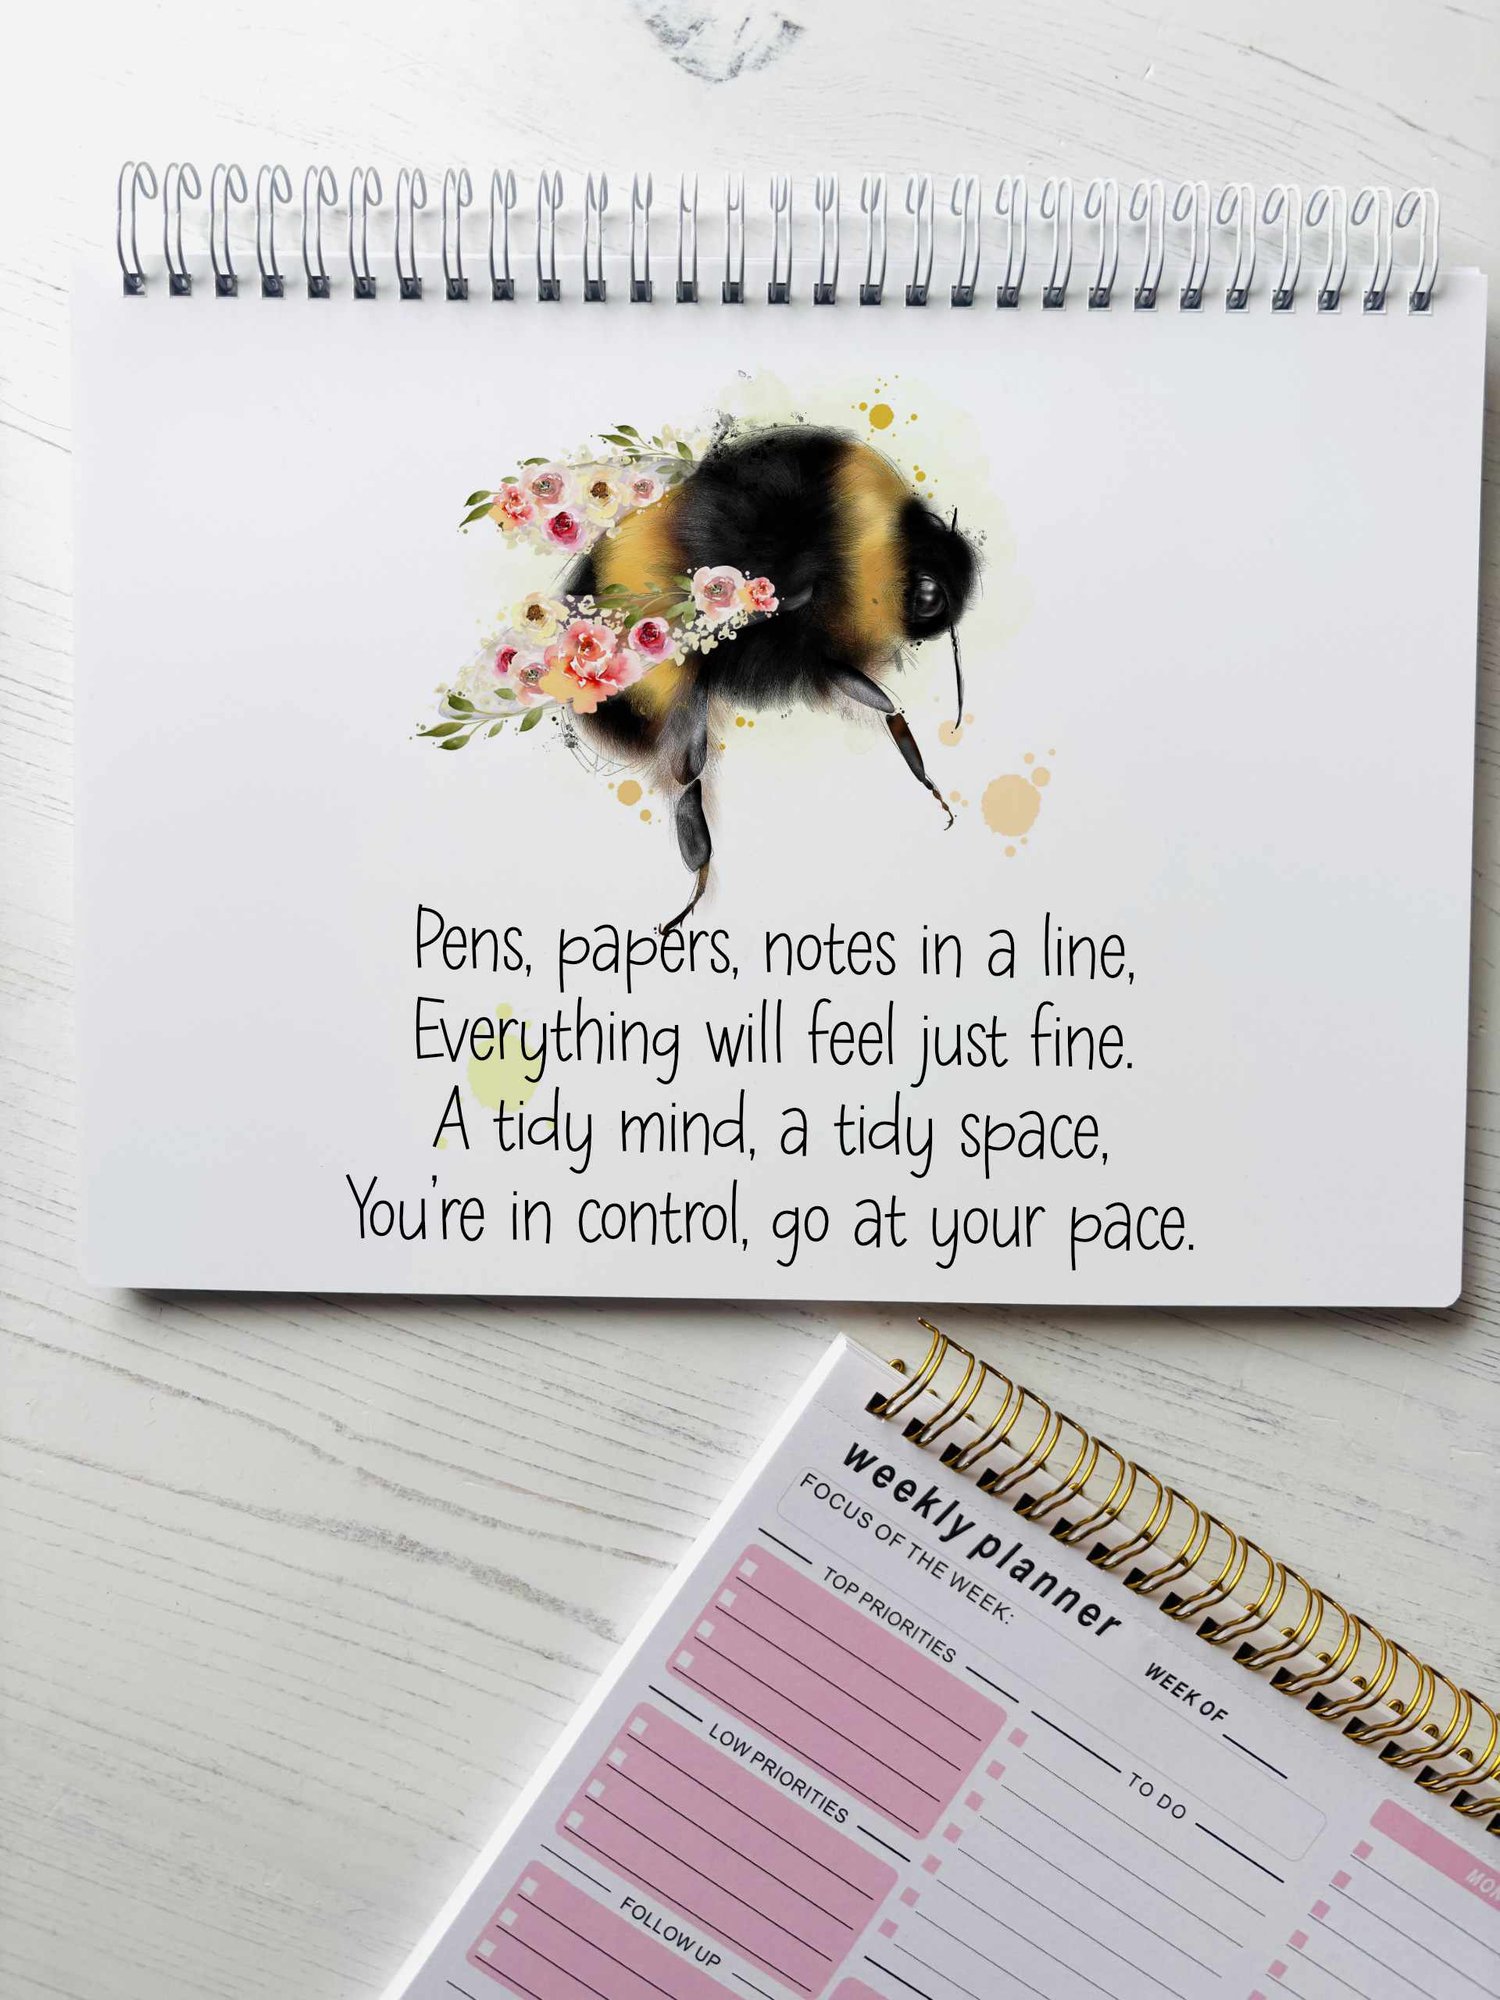 Pens, papers, notes in a line,
Everything will feel just fine.
A tidy mind, a tidy space,
You're in control, go at your pace.
weekly planner
FOCUS OF THE WEEK:
WEEK OF
TOP PRIORITIES
TO DO
LOW PRIORITIES
FOLLOW UP